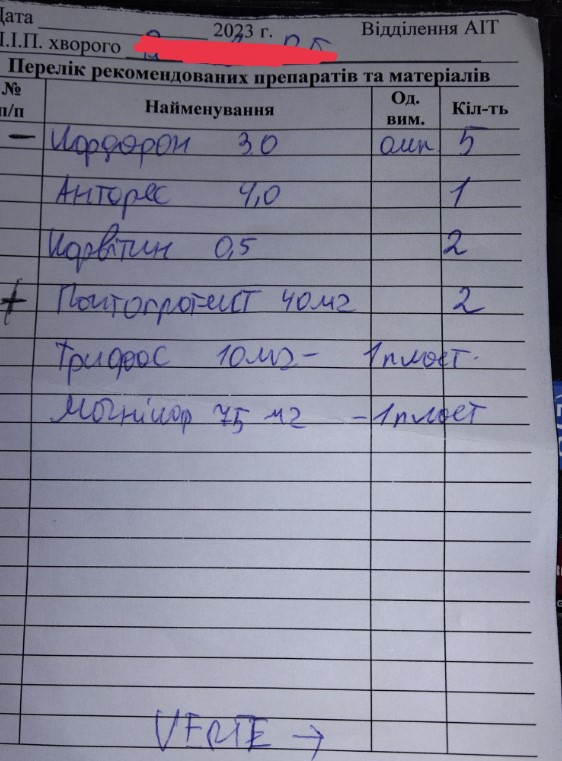 Дата 2023 г. Відділення АІТ
П.І.П. хворого
Перелік рекомендованих препаратів та матеріалів
№ п/п Найменування Од. вим. Кіл-ть
– Кордарон 3.0 амп 5
Антарес 4,0 1
Корвітин 0,5 2
+ Пантопротект 40мг 2
Трифас 10мг – 1 пласт.
Магнікор 75 мг – 1 пласт
VERTE →